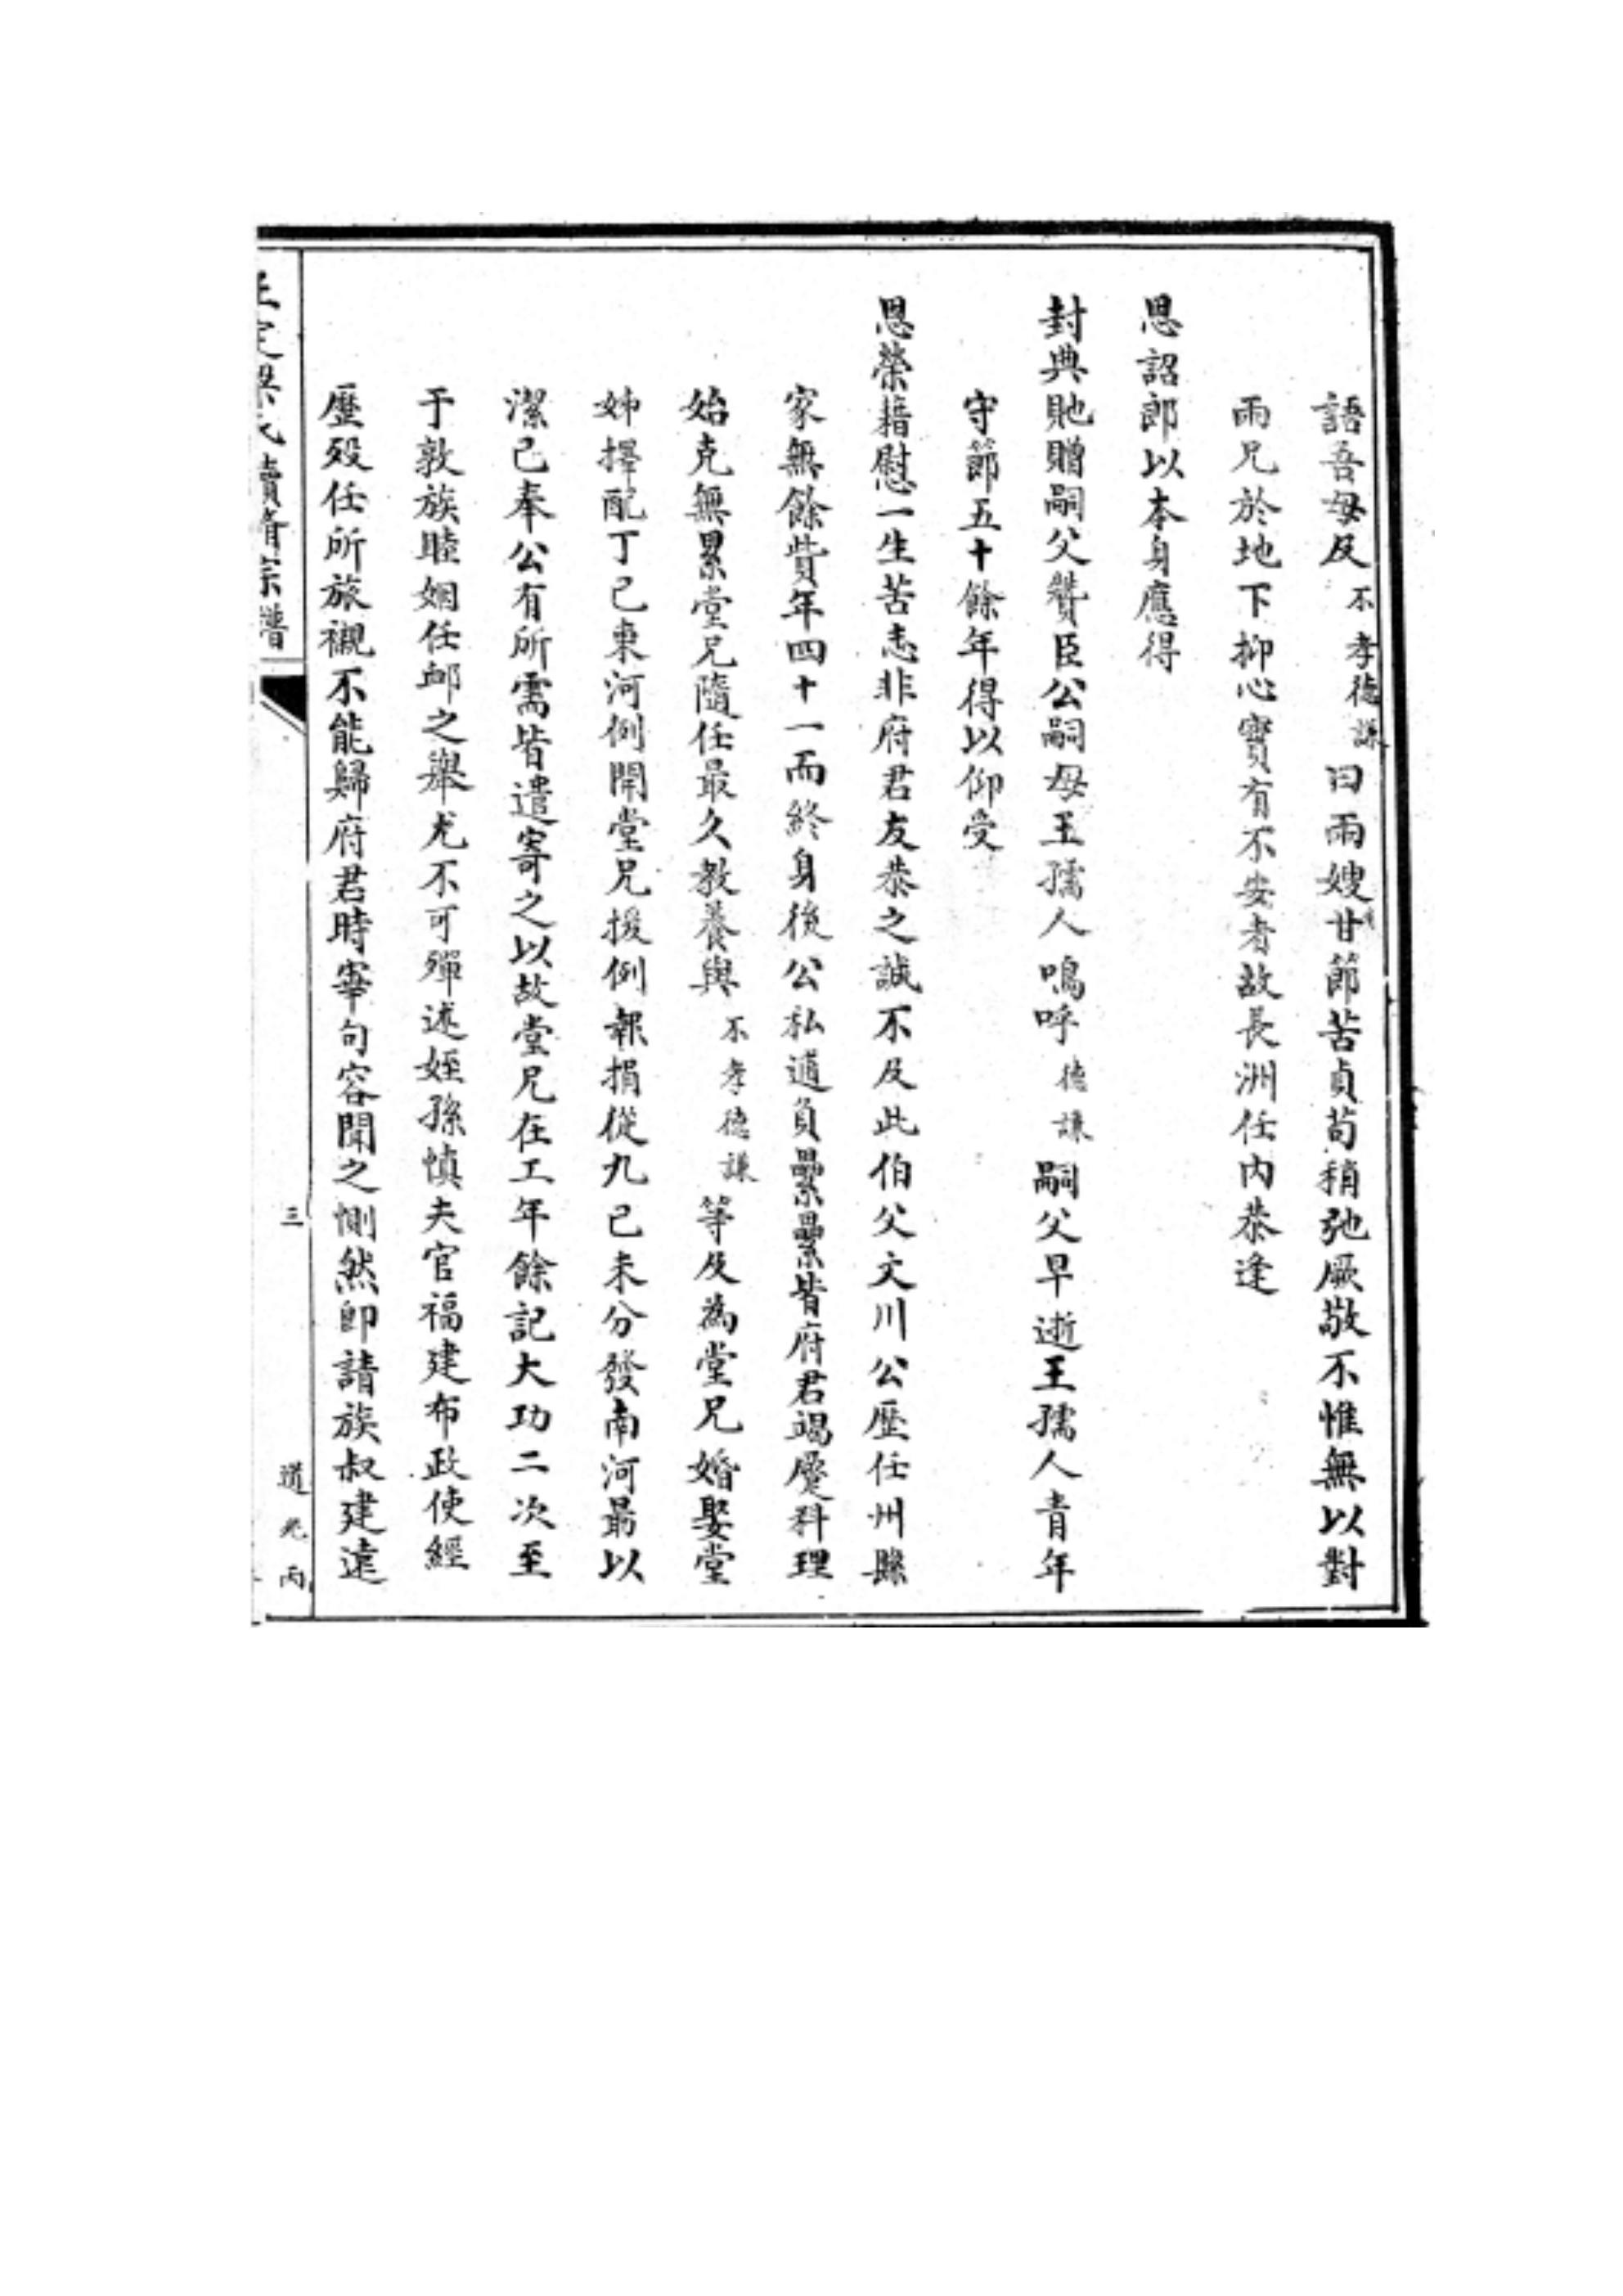 語吾母及不孝德謙曰兩嫂甘節苦貞苟稍弛厥敬不惟無以對
兩兄於地下抑心實有不安者故長洲任內恭逢
恩詔即以本身應得
封典貤贈嗣父贊臣公嗣母王孺人嗚呼德謙嗣父早逝王孺人青年
守節五十餘年得以仰受
恩榮藉慰一生苦志非府君友恭之誠不及此伯父文川公歷任州縣
家無餘貲年四十一而終身後公私逋負纍纍皆府君竭蹷料理
始克無累堂兄隨任最久教養與不孝德謙等及為堂兄婚娶堂
姊擇配丁已東河例開堂兄援例報捐從九已未分發南河最以
潔己奉公有所需皆遣寄之以故堂兄在工年餘記大功二次至
于敦族睦婣任卹之舉尤不可殫述姪孫慎夫官福建布政使經
歷歿任所旅櫬不能歸府君時宰句容聞之惻然即請族叔建遠
梁氏續脩宗譜
三
道光丙